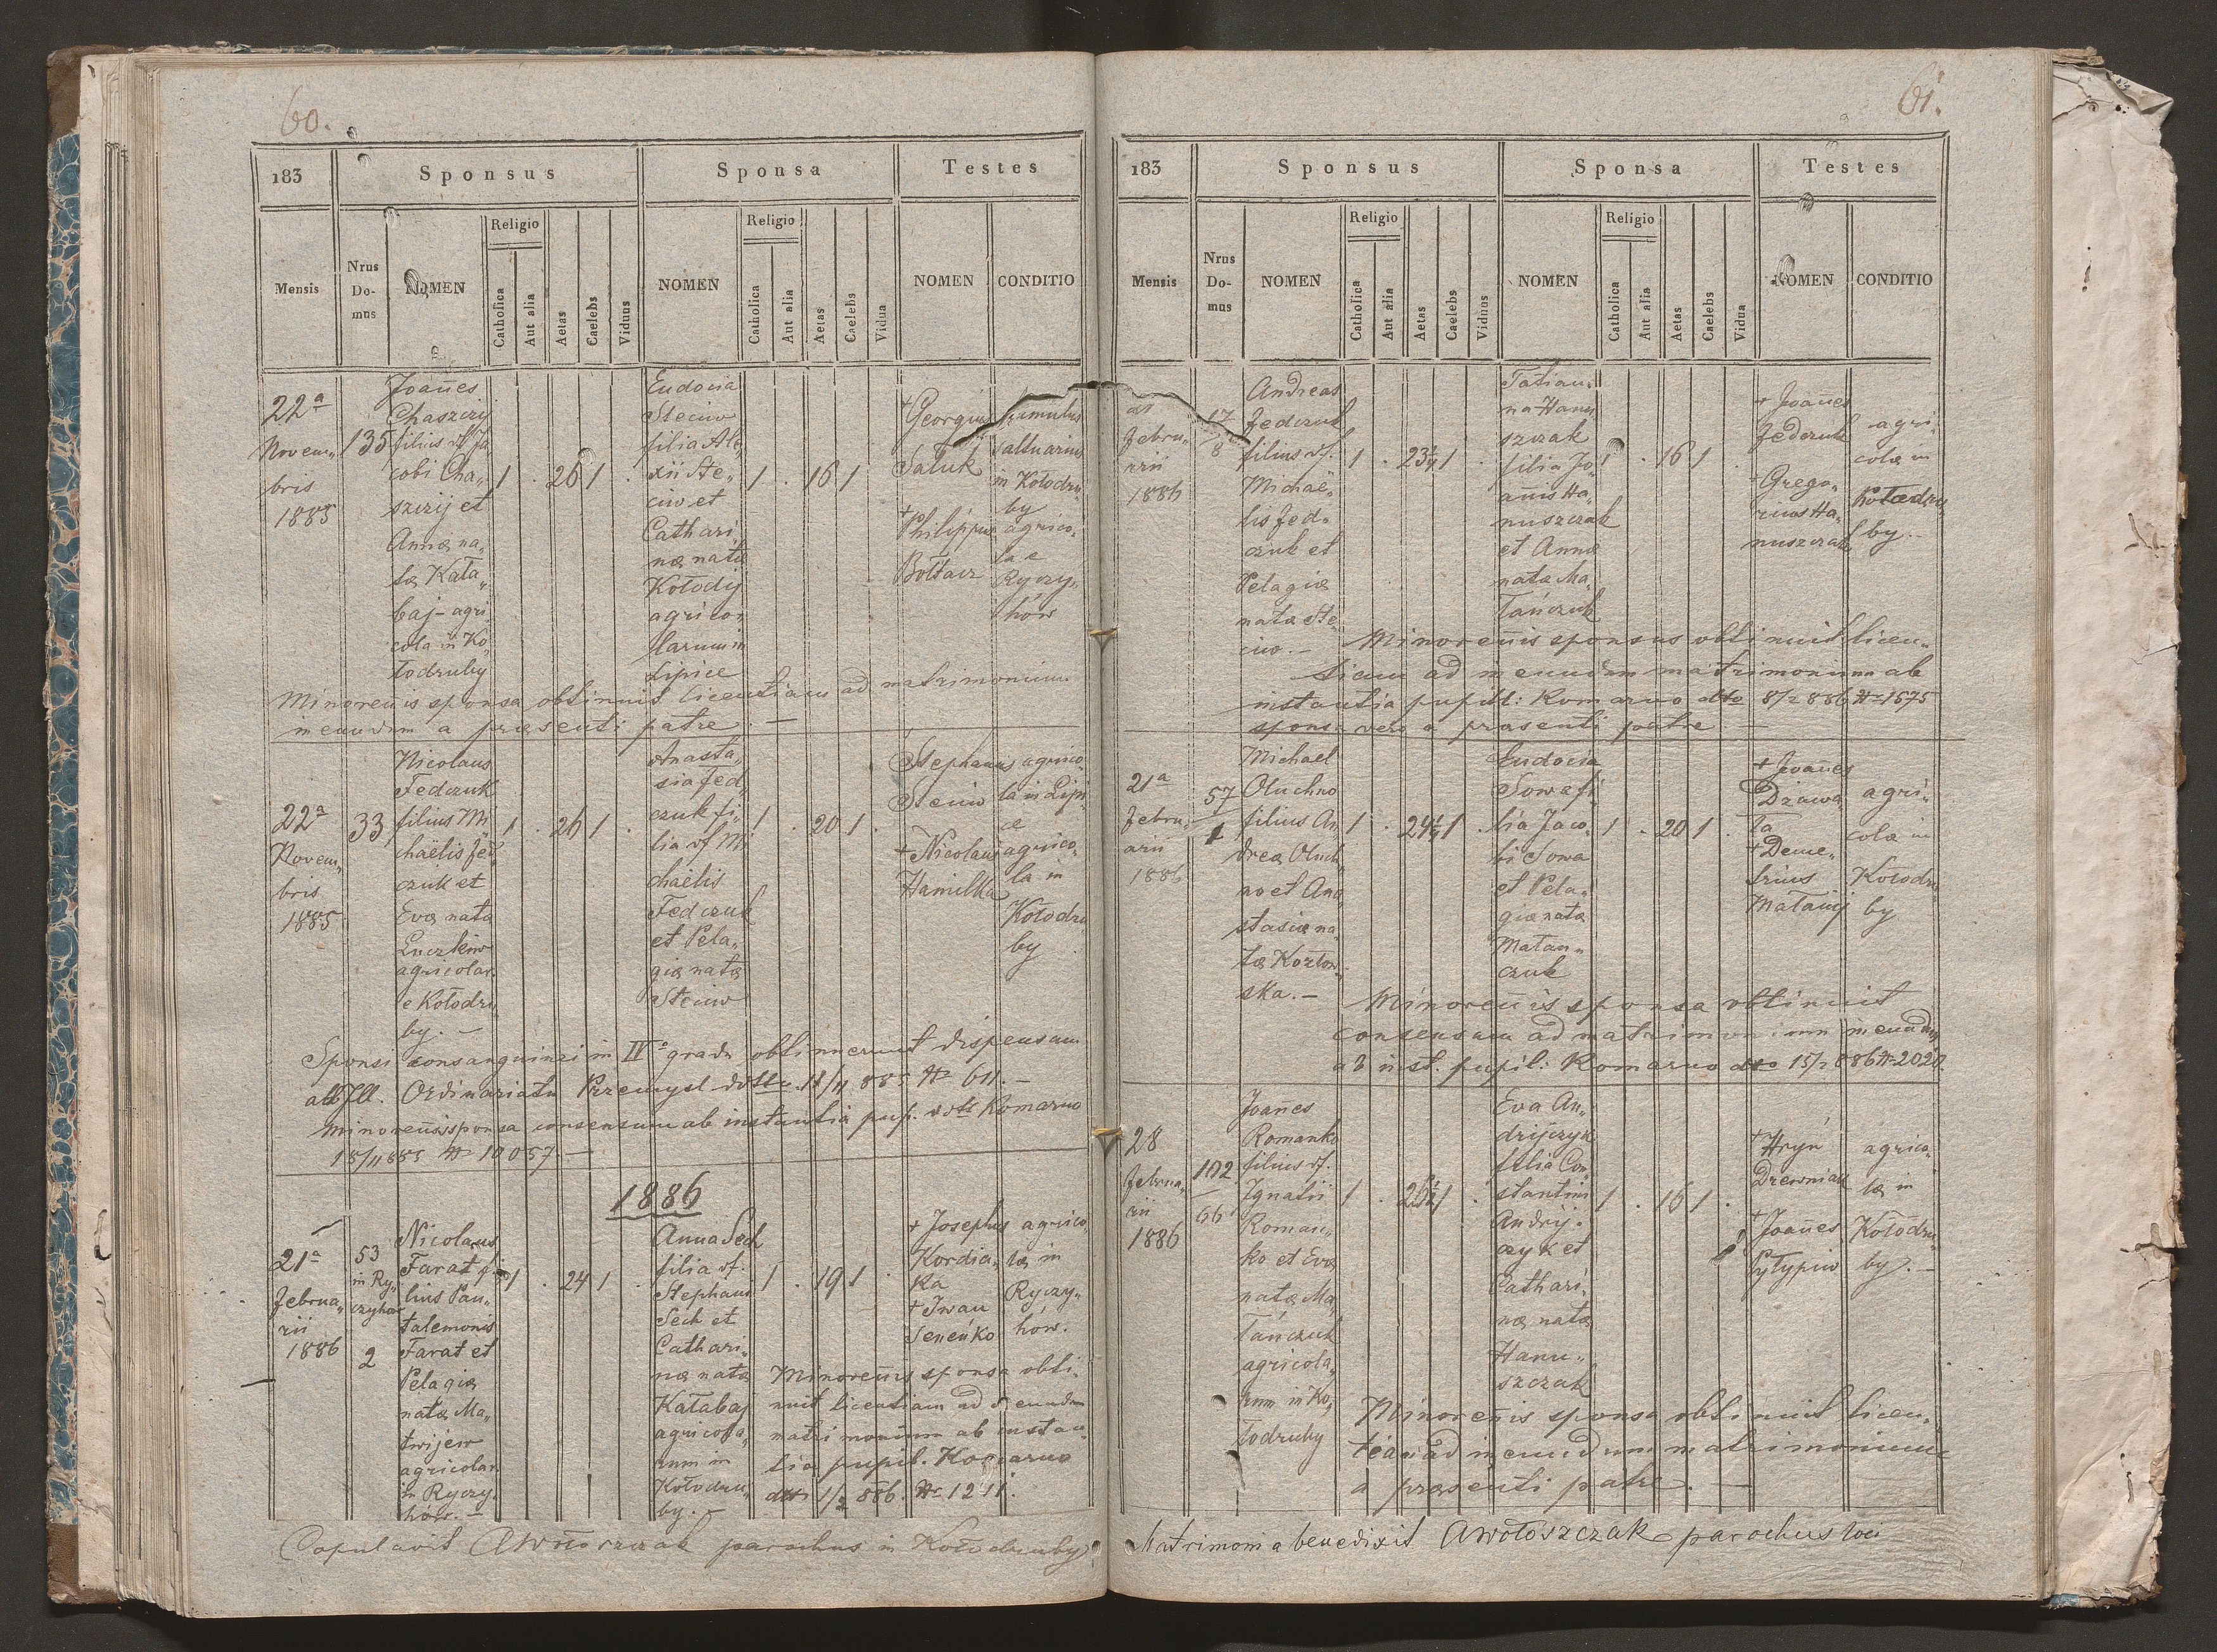 60.
183 Sponsus Sponsa Testes
Mensis Nrus Domus NOMEN Religio Catholica Aut alia Aetas Caelebs Viduus NOMEN Religio Catholica Aut alia Aetas Caelebs Vidua NOMEN CONDITIO
22a
Novem„
bris
1885
135
Joannes
Chaszczij
filius vf. Ja
cobi Cha„
szczij et
Annæ na„
tæ Kała„
baj - agri
cola in Ko„
łodruby
1 . 26 1 .
Eudocia
Steciw
filia Ale
xii Ste„
ciw et
Cathari
næ natæ
Kołodij
agrico„
larum in
Lipice
1 . 16 1
+ Georgius
Saluk
+ Philippus
Bołtacz
famulus
saltuarius
in Kołodru
by
agrico„
lae
Ryczy„
hów
Minorenis sponsa obtinuit licentiam ad matrimonium
ineundum a præsenti patre. —
22a
Novem„
bris
1885
33
Nicolaus
Fedczuk
filius Mi
chaëlis Fed
czuk et
Evæ natæ
Luczkiw
agricolar.
e Kołodru
by. —
1 . 26 1 .
Anasta„
sia Fed„
czuk fi„
lia vf Mi
chaëlis
Fedczuk
et Pela„
giæ natæ
Steciw
1 . 20 1 .
Stephanus
Steciw
+ Nicolaus
Hamilka
agrico
la in Lipi
ce
agrico„
la in
Kołodru
by
Sponsi consanguinei in IVo gradu obtinuerunt dispensam
ab Ill. Ordinariatu Przemysl
Minorenis sponsa consensum ab instantia pup. Komarno
18/11 885 N 10057 —
1886
21a
Februa„
rii
1886
53
in Ry„
czyhow
2
Nicolaus
Farat fi„
lius Pan„
talemonis
Farat et
Pelagiæ
natæ Ma„
twijew
agricolar.
in Ryczy
hów. —
1 . 24 1 .
Anna Sech
filia vf.
Stephani
Sech et
Cathari„
næ natæ
Kałabaj
agricola„
rum in
Kołodru„
by. —
1 . 19 1 .
+ Josephus
Kordia„
ka
+ Iwan
Seneńko
agrico
læ in
Ryczy„
hów.
Minorenis sponsa obti„
nuit licentiam ad ineundum
matrimonium ab instan„
tia pupil. Komarno
dtto 1/2 886. N 1211.
Copulavit AWołoszczak parochus in Kołodruby
61.
183 Sponsus Sponsa Testes
Mensis Nrus Domus NOMEN Religio Catholica Aut alia Aetas Caelebs Viduus NOMEN Religio Catholica Aut alia Aetas Caelebs Vidua NOMEN CONDITIO
21
Febru„
arii
1886
17
8
Andreas
Fedczuk
filius vf.
Michaë„
lis Fed„
czuk et
Pelagiæ
natæ Ste„
ciw. —
1 . 23 1/4 1 .
Tatian„
na Hanu
szczak
filia Jo„
annis Ha„
nuszczak
et Annæ
natæ Ma„
tańczuk
1 . 16 1 .
+ Joannes
Fedczuk
+ Grego„
rius Ha„
nuszczak
agri„
colæ in
Kołodru„
by. —
Minorenis sponsus obtinuit licen„
tiam ad ineundum matrimonium ab
instantia pupill: Komarno dtto 8/2 886 N 1575
sponsa vero a præsenti patre —
21a
Febru„
arii
1886
57
1
Michael
Oluchno
filius An„
dreæ Oluch
no et Ana
stasiæ na„
tæ Kozłow„
ska. —
1 . 24 1/4 1 .
Eudocia
Sowa fi„
lia Jaco„
bi Sowa
et Pela„
giæ natæ
Matan„
czuk
1 . 20 1 .
+ Joannes
Dżawa
ła
+ Deme„
trius
Matwij
agri„
colæ in
Kołodru
by
Minorenis sponsa obtinuit
consensum ad matrimonium ineundum
ab inst. pupil: Komarno dto 15/2 886 N 2020.
28
Februa„
rii
1886
102
66
Joannes
Romanko
filius vf.
Ignatii
Roman„
ko et Evæ
natæ Ma„
tańczuk
agricola„
rum in Ko„
łodruby
1 . 26 1/2 1 .
Eva An„
drijczyk
filia Con„
stantini
Andrij„
czyk et
Cathari„
næ natæ
Hanu„
szczak
1 . 16 1 .
+ Hryń
Drewniak
+ Joannes
Pyłypiw
agrico„
læ in
Kołodru„
by. —
Minorenis sponsa obtinuit licen„
tiam ad ineundum matrimonium
a præsenti patre. —
Matrimonia benedixit AWołoszczak parochus loci